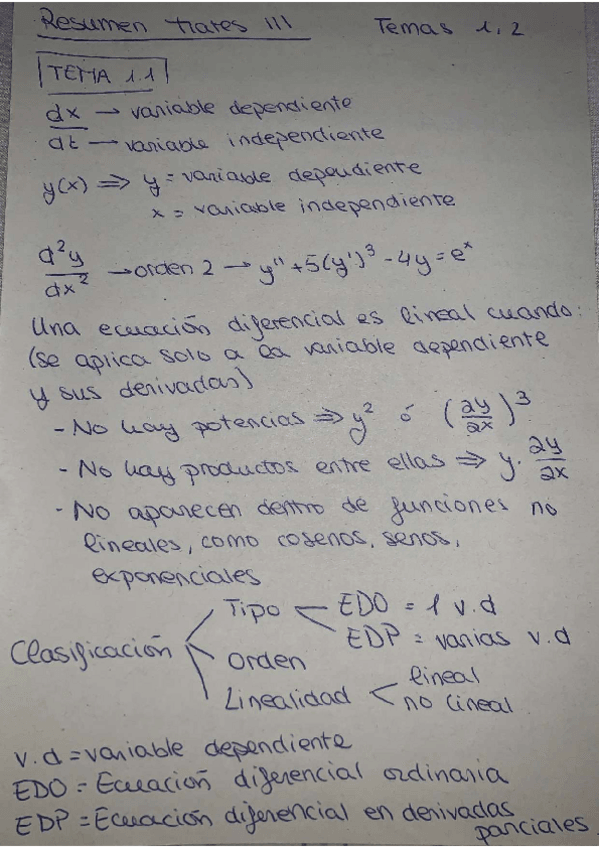 Resumen mates III Temas 1, 2
TEMA 1.1
dx → variable dependiente
dt → variable independiente
y(x) ⟹ y = variable dependiente
x = variable independiente
d²y/dx² → orden 2 → y'' + 5(y')³ - 4y = eˣ
Una ecuación diferencial es lineal cuando:
(se aplica solo a la variable dependiente
y sus derivadas)
- No hay potencias ⟹ y² ó (∂y/∂x)³
- No hay productos entre ellas ⟹ y · ∂y/∂x
- No aparecen dentro de funciones no
lineales, como cosenos, senos,
exponenciales
Tipo EDO = 1 v.d
EDP = varias v.d
Clasificación
Orden
Linealidad lineal
no lineal
v.d = variable dependiente
EDO = Ecuación diferencial ordinaria
EDP = Ecuación diferencial en derivadas
parciales